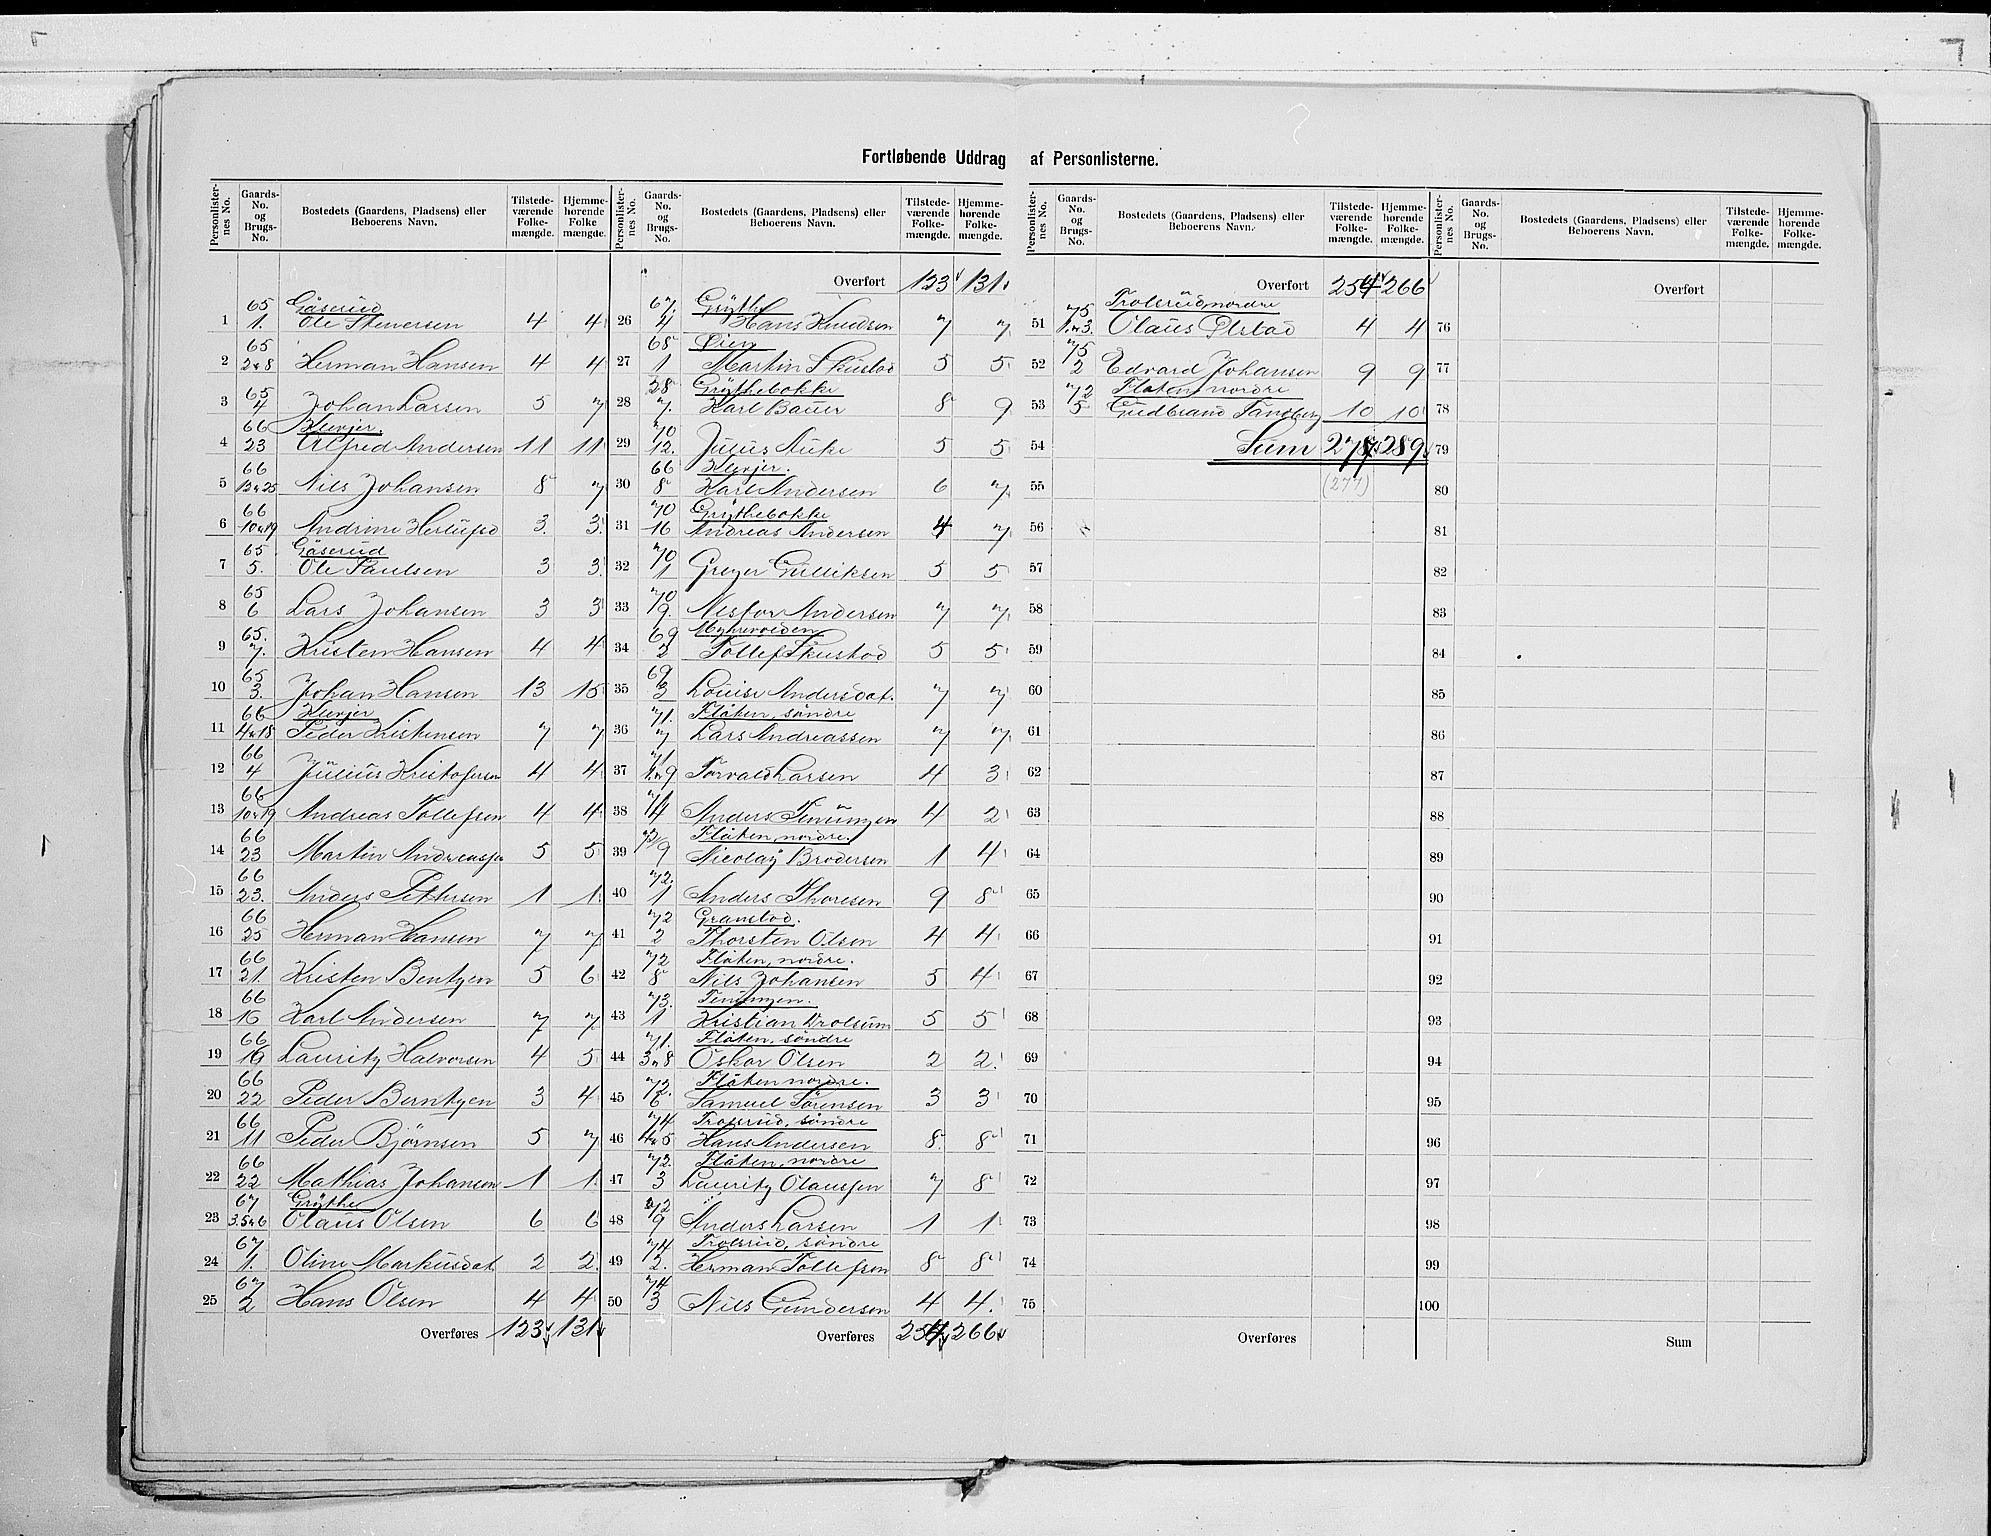 Fortløbende Uddrag af Personlisterne.
Personlisternes No. Gaards-No. og Brugs-No. Bostedets (Gaardens, Pladsens) eller Beboerens Navn. Tilstedeværende Folkemængde. Hjemmehørende Folkemængde.
65 Gåserud
1 1. Ole Steversen 4 4
65
2 2 & 8 Herman Hansen 4 4
65
3 4 Johan Larsen 5 7
66 Klevjer.
4 23 Alfred Andersen 11 11
66
5 13 & 25 Nils Johansen 8 7
66
6 10 & 19 Andrine Herlufsd 3. 3.
65 Gåserud
7 5. Ole Paulsen 3 3
65
8 6 Lars Johansen 3 3
65.
9 7. Kristen Hansen 4 4
65
10 3. Johan Hansen 13 15
66 Klevjer
11 4 & 18 Peder Kristensen 7 7
66
12 4 Julius Kristofersen 4 4
66
13 10 & 19 Andreas Tollefsen 4 4
66
14 23 Martin Andreassen 5 5
66
15 23. Anders Pettersen 1 1
66
16 25 Herman Hansen 7 7
66
17 21. Kristen Bentzen 5 6
66
18 16 Karl Andersen 7 7
66
19 19 Lauritz Halvorsen 4 5
66
20 22 Peder Berntzen 3 4
66
21 11 Peder Bjørnsen 5 7
66
22 22 Mathias Johansen 1 1
67 Grythe
23 3.5 & 6 Olaus Olsen 6 6
67
24 1. Oline Markusdat. 2 2
67
25 2 Hans Olsen 4 4
Overføres 123 131
Overført 123 131
67. Grythe
26 4 Hans Knudsen 7 7
68 Øien
27 1 Martin Skustad 5 5
28 Grythebakke
28 7. Karl Bauer 8 9
70
29 12. Julius Auke 5 5
66 Klevjer.
30 8 Karl Andersen 6 7
70 Grythebakke
31 16 Andreas Andersen 4 7
70
32 1 Greger Gulliksen 5 5
70
33 9. Nestor Andersen 7 7
69 Myhrvolden
34 2 Tollef Skustad 5 5
69
35 3 Louise Andersdat. 7 7
71. Flåten, søndre
36 7 Lars Andreassen 7 7
71
37 1 & 9 Torvald Larsen 4 3
71
38 4 Anders Teningen 4 2
72 Flåten, nordre.
39 9 Nicolay Brodersen 1 4
72.
40 1 Anders Thoresen 9 8
72 Granstad.
41 2 Thorsten Olsen 4 4
72 Flåten, nordre.
42 8 Nils Johansen 5 4
73. Teningen.
43 1 Kristian Vrolsum 5 5
71. Flåten, søndre
44 3 & 8 Oskar Olsen 2 2.
72. Flåten nordre.
45 6 Samuel Sørensen 3 3
74 Trolsrud, søndre
46 4 & 5 Hans Andersen 8 8
72. Flåten, nordre
47 3 Lauritz Olaussen 7 8
72
48 9 Anders Larsen 1 1
74 Trolsrud, søndre
49 2. Herman Tollefsen 8 8
74
50 3 Nils Gundersen 4 4.
Overføres 254 266
Overført 254 266
75 Trolsrud, nordre
51 1 & 3. Olaus Olstad 4 4
75
52 2 Edvard Johansen 9 9
72 Flåten, nordre
53 5 Gudbrand Tandberg 10 10
54 Sum 277 289
55 (277)
56
57
58
59
60
61
62
63
64
65
66
67
68
69
70
71
72
73
74
75
Overføres
Overført
76
77
78
79
80
81
82
83
84
85
86
87
88
89
90
91
92
93
94
95
96
97
98
99
100
Sum